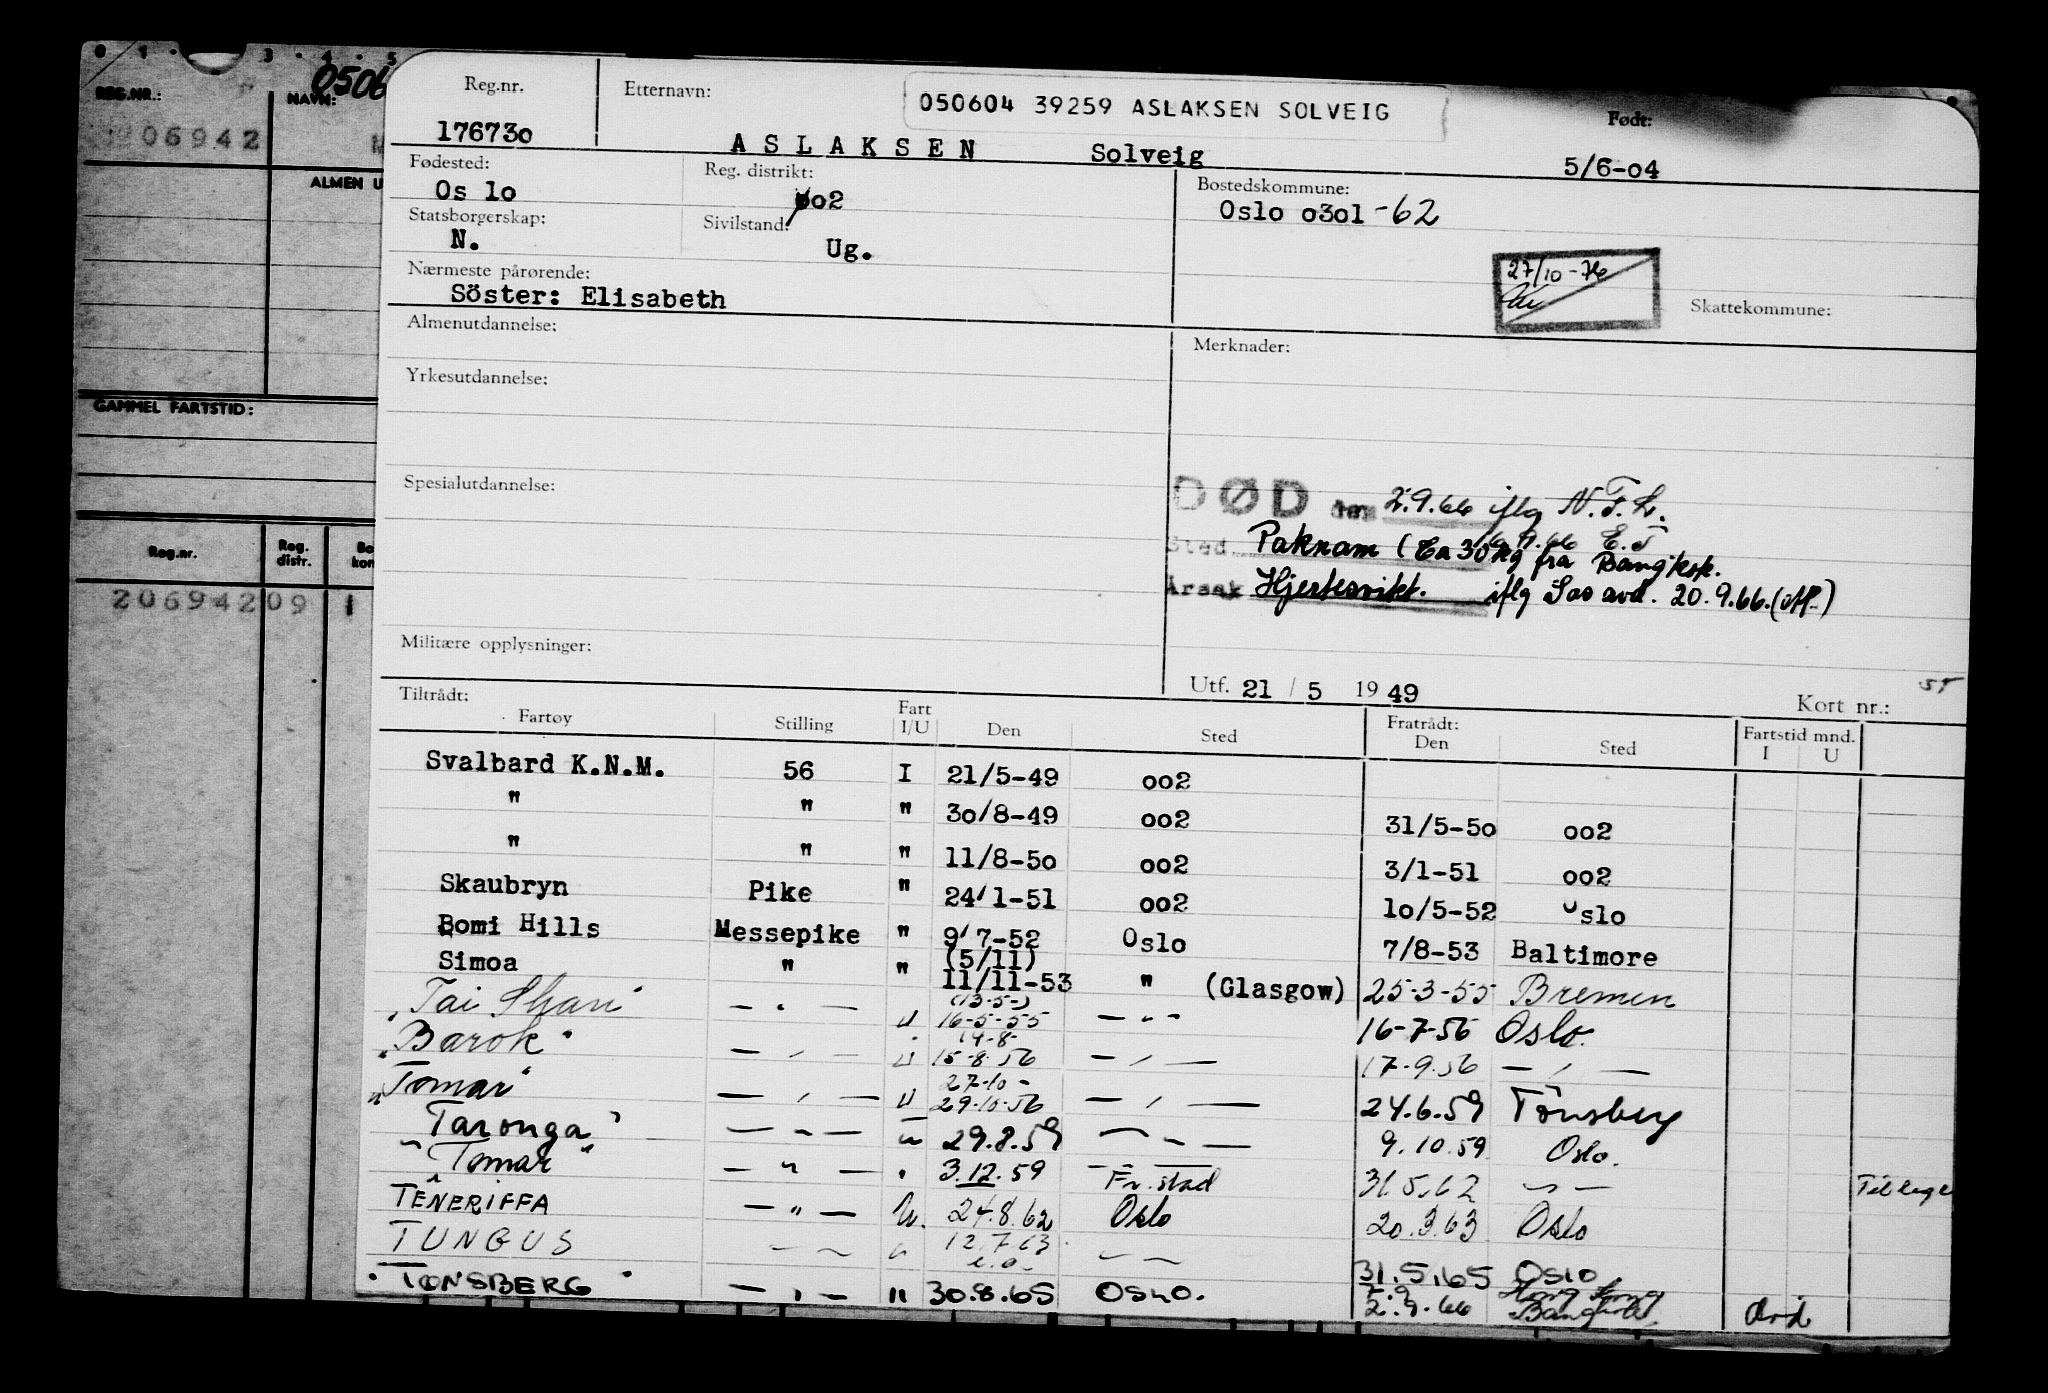 0 1 · 3 · 4 · 5
0506
REG.NR.:
NAVN:
206942
ALMEN U
GAMMEL FARTSTID:
Reg.nr.
Reg. distr.
Bo kon
206942 09 1
Reg.nr. Etternavn: 050604 39259 ASLAKSEN SOLVEIG Født:
176730 A S L A K S E N Solveig 5/6-04
Fødested: Reg. distrikt: Bostedskommune:
Os lo 002 Oslo 0301 -62
Statsborgerskap: Sivilstand:
N. Ug.
27/10-76
Nærmeste pårørende:
Söster: Elisabeth
Skattekommune:
Almenutdannelse:
Merknader:
Yrkesutdannelse:
Spesialutdannelse:
DØD den 2.9.66 iflg N.T.L.
Sted Paknam (Ca 30 kg fra Bangkok.
Årsak Hjertesvikt. iflg Sos avd. 20.9.66.
Militære opplysninger:
Utf. 21 / 5 1949
Kort nr.:
Tiltrådt: Fart Fratrådt: Fartstid mnd.
Fartøy Stilling I/U Den Sted Den Sted I U
Svalbard K.N.M. 56 I 21/5-49 002
" " " 30/8-49 002 31/5-50 002
" " " 11/8-50 002 3/1-51 002
Skaubryn Pike " 24/1-51 002 10/5-52 Oslo
Bomi Hills Messepike " 9/7-52 Oslo 7/8-53 Baltimore
Simoa " " (5/11) 11/11-53 " (Glasgow) 25-3-55 Bremen
"Tai Shan" — " — U (13-5-) 16-5-55 — " — 16-7-56 Oslo.
"Barok" — " — U 14-8- 15-8-56 — " — 17-9-56 — " —
"Tomar" — " — U 27-10- 29-10-56 — " — 24.6.59 Tønsberg
"Taronga" — " — " 29.8.59 — " — 9.10.59 Oslo.
"Tomar" — " — " 3.12.59 Fr.stad 31.5.62 — " —
TENERIFFA — " — U. 24.8.62 Oslo 20.3.63 Oslo
TUNGUS — " — " 12.7.63 — " — 31.5.65 OSLO
"TØNSBERG" — " — " 30.8.65 OSLO. 2.9.66 Hong Kong Bangkok. død